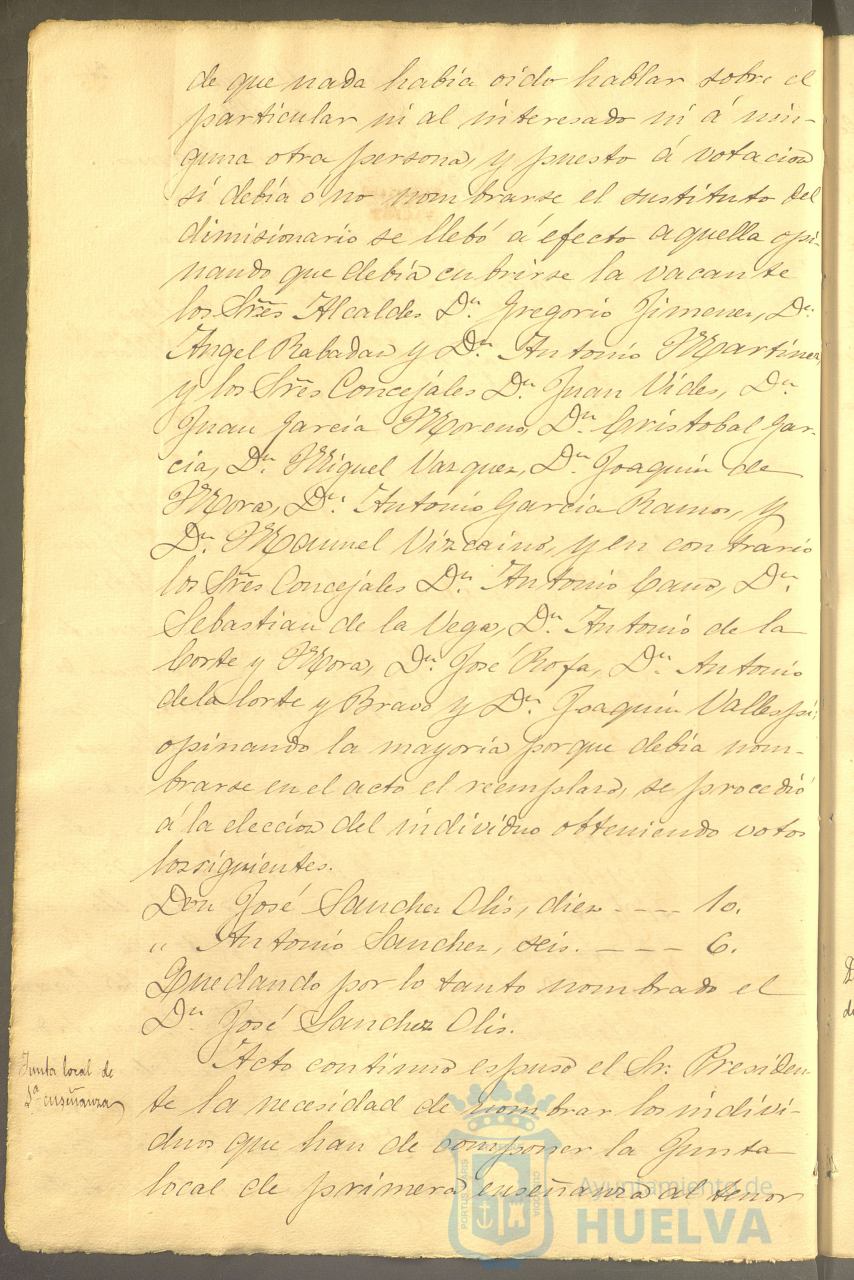 de que nada habia oido hablar sobre el
particular ni al interesado ni á nin-
guna otra persona, y puesto á votacion
si debia ó no nombrarse el sustituto del
dimisionario se llebó á efecto aquella opi-
nando que debia cubrirse la vacante
los Sres Alcaldes Dn. Gregorio Jimenez, Dn.
Angel Rabadan y Dn. Antonio Martinez,
y los Sres Concejales Dn. Juan Vides, Dn.
Juan Garcia Moreno, Dn. Cristobal Gar-
cia, Dn. Miguel Vazquez, Dn. Joaquin de
Mora, Dn. Antonio Garcia Ramos, y
Dn. Manuel Vizcaino, y en contrario
los Sres Concejales Dn. Antonio Cano, Dn.
Sebastian de la Vega, Dn. Antonio de la
Corte y Mora, Dn. José Rofa, Dn. Antonio
de la Corte y Bravo y Dn. Joaquin Vallespi;
opinando la mayoria porque debia nom-
brarse en el acto el reemplazo, se procedió
á la eleccion del individuo obteniendo votos
los siguientes.
Don José Sanchez Olis, diez ---- 10.
" Antonio Sanchez, seis. ---- 6.
Quedando por lo tanto nombrado el
Dn. José Sanchez Olis.
Junta local de
1ª enseñanza
Acto continuo espuso el Sr. Presiden-
te la necesidad de nombrar los indivi-
duos que han de componer la Junta
local de primera enseñanza al tenor
PORTUS MARIS
ET TERRAE CUSTODIA
Ayuntamiento de
HUELVA